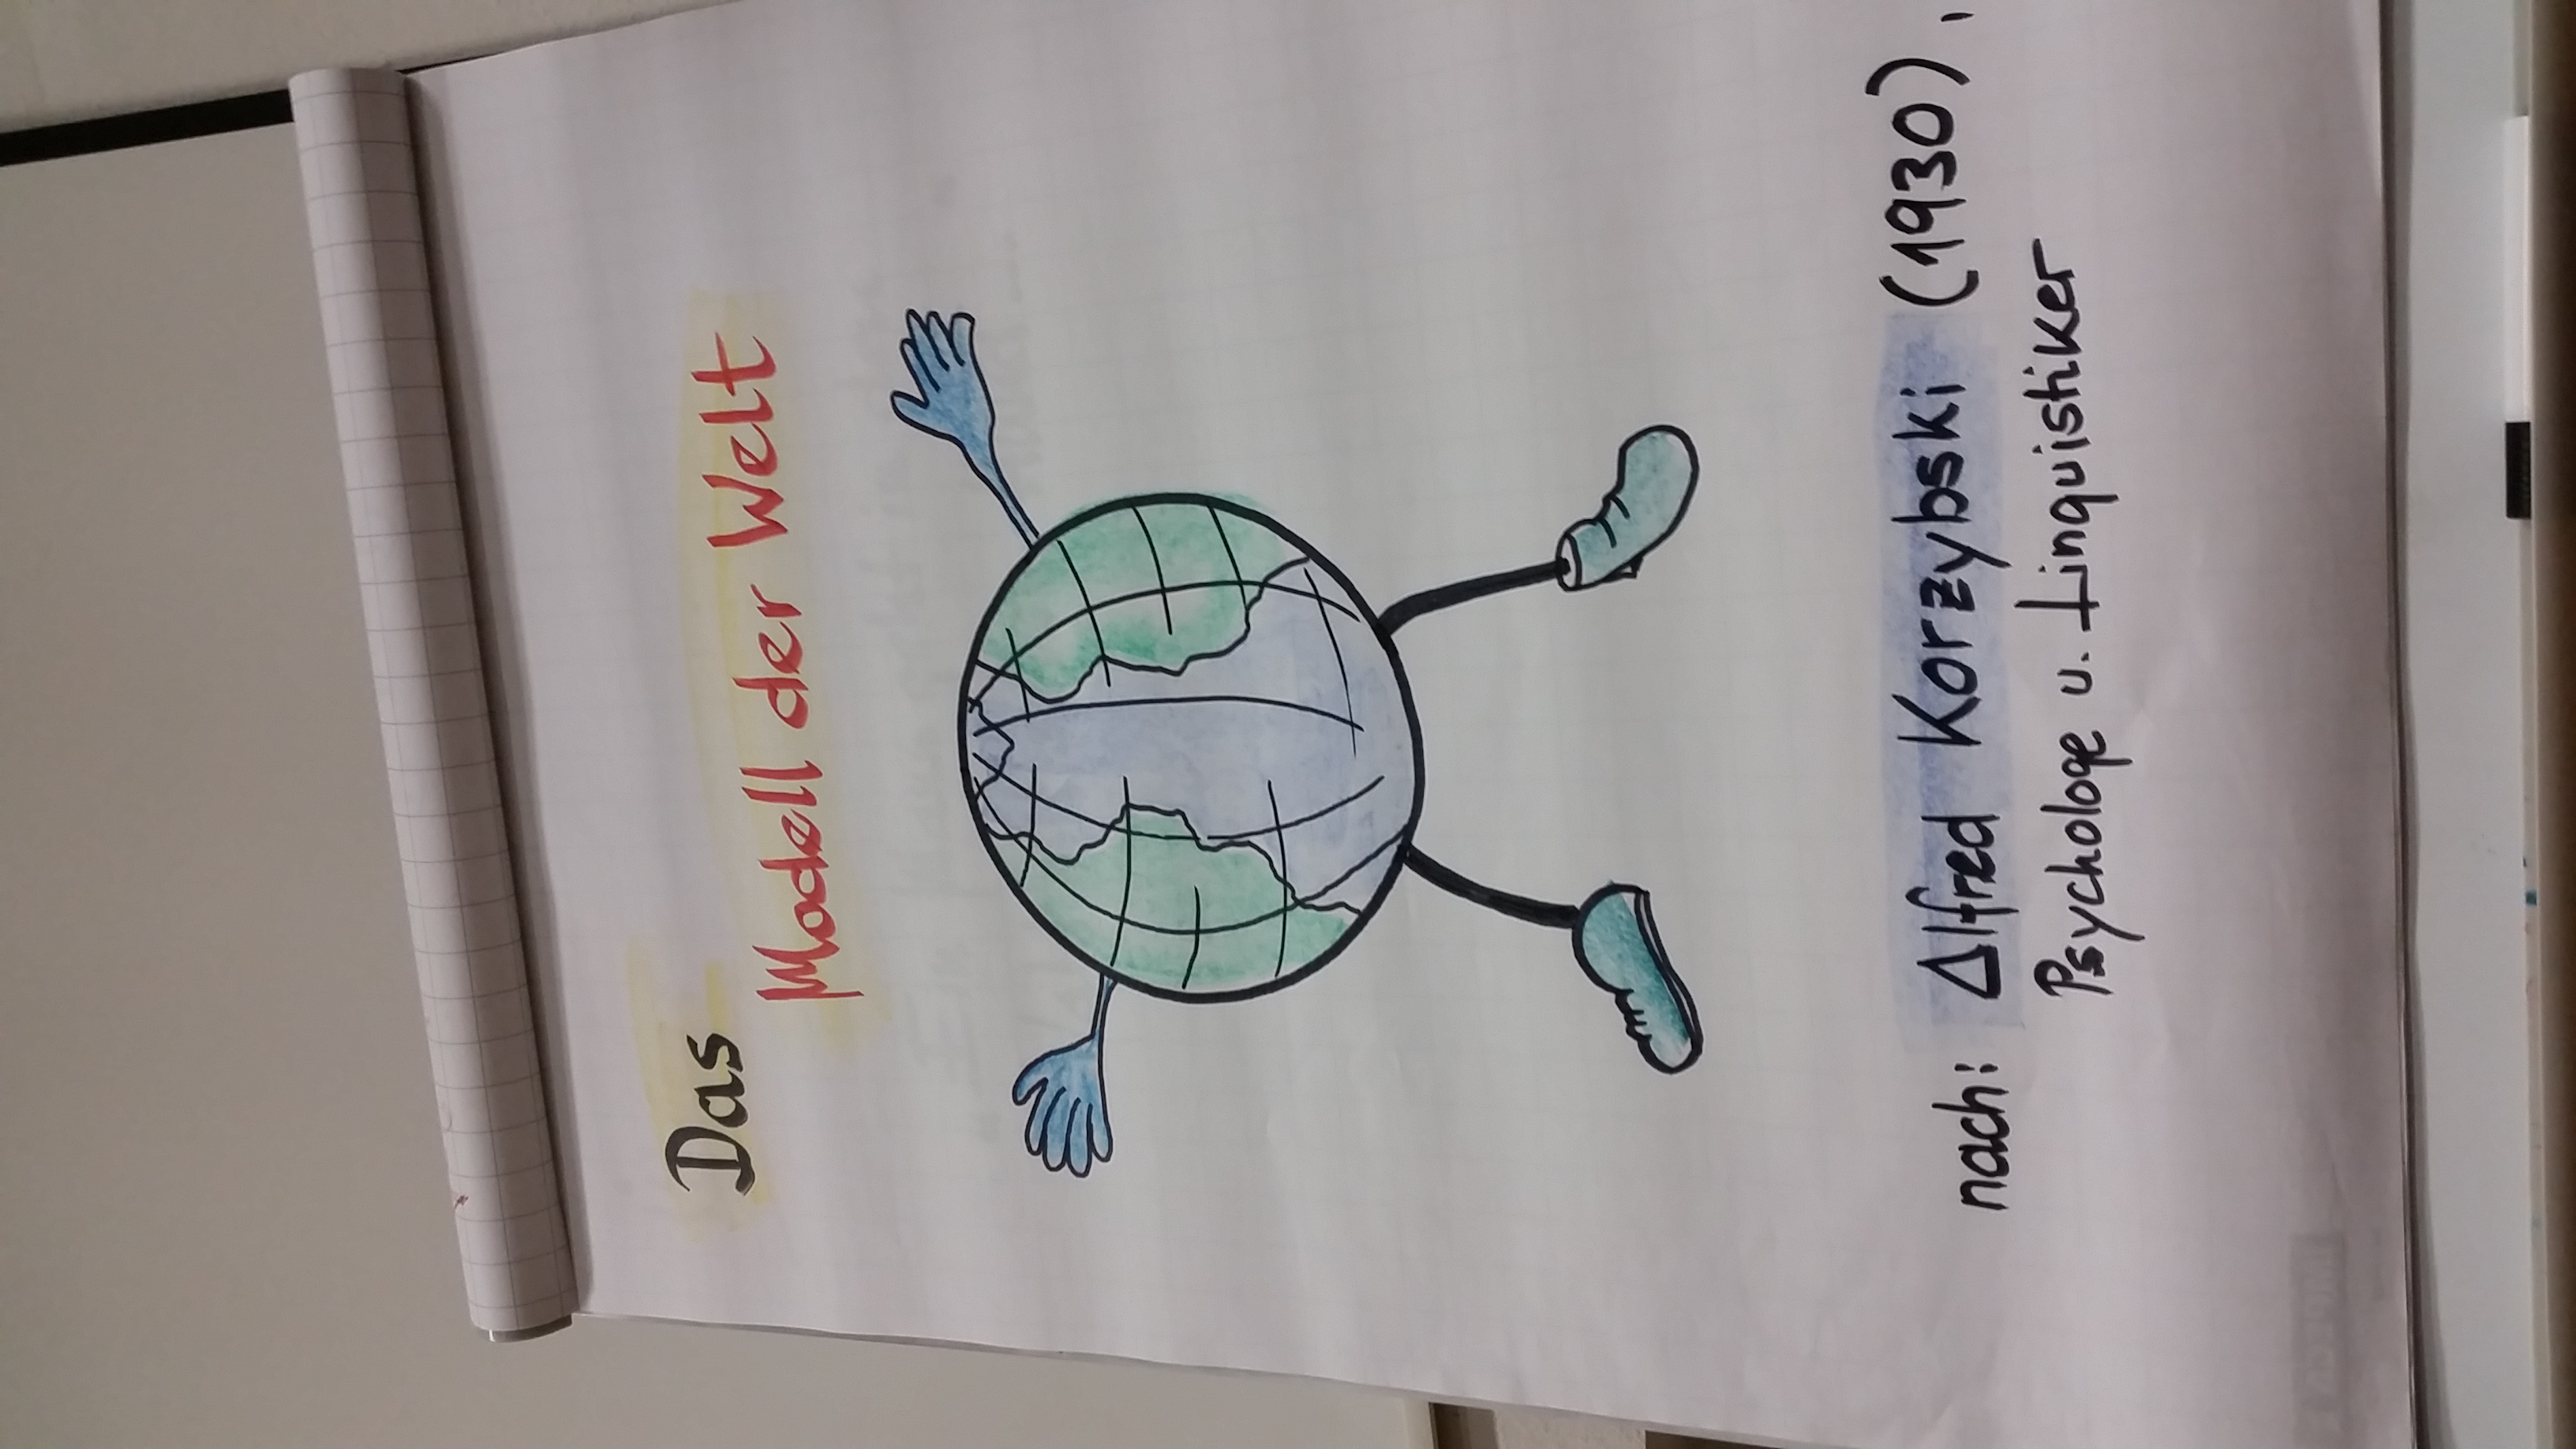 Das
Modell der Welt
nach: Alfred Korzybski (1930),
Psychologe u. Linquistiker